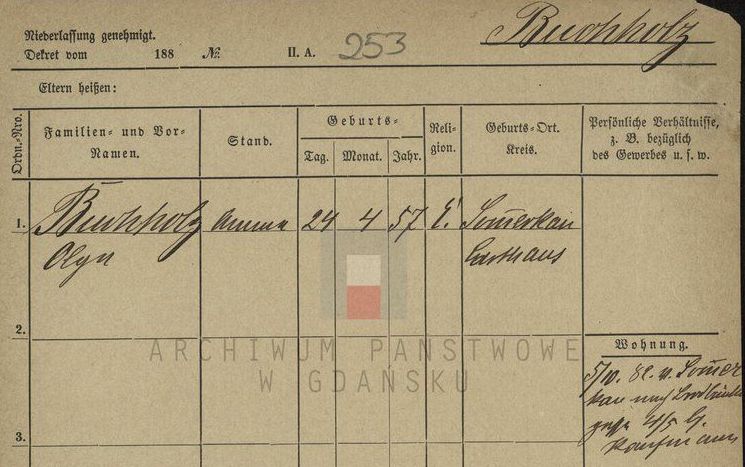 Buchholz
Niederlassung genehmigt.
Dekret vom 188 №. II. A. 253
Eltern heißen:
Ordn.-Nro.
Familien- und Vor-
Namen.
Stand.
Geburts-
Tag. Monat. Jahr.
Reli-
gion.
Geburts-Ort.
Kreis.
Persönliche Verhältnisse,
z. B. bezüglich
des Gewerbes u. s. w.
1. Buchholz Amme 24 4 57 E. Som̅erkau
Olga Carthaus
2.
Wohnung.
ARCHIWUM PAŃSTWOWE
W GDAŃSKU
5/10. 82. v. Som̅er
kau nach
4/5 b.
Kaufmann
3.